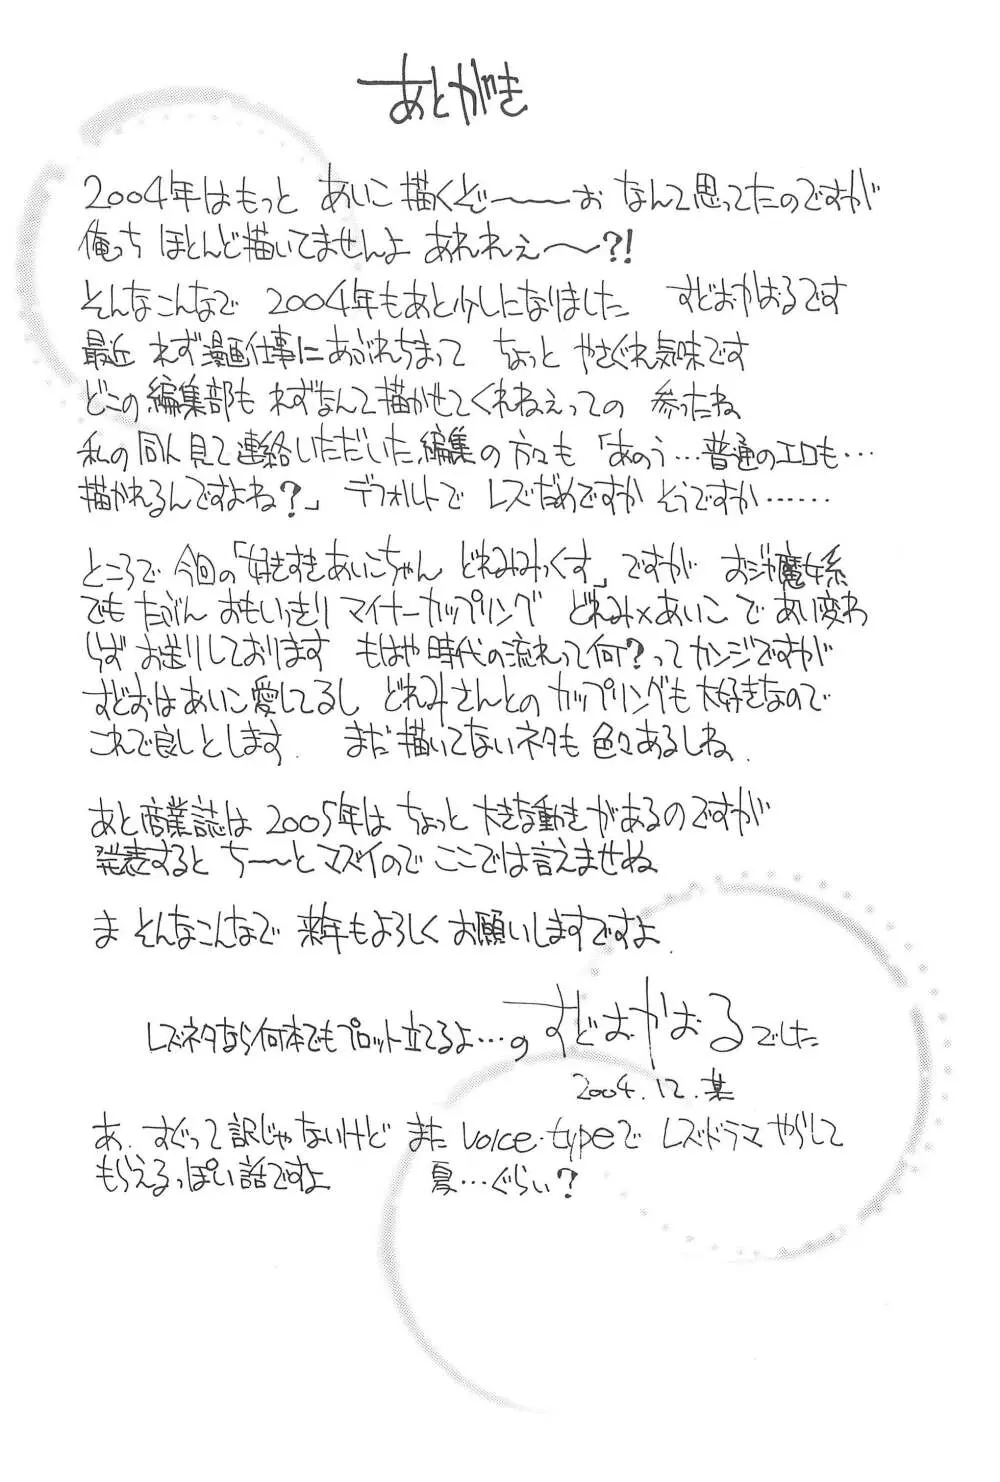 あとがき
2004年はもっと あいこ描くぞ〜〜ぉ なんて思ってたのですが
俺っち ほとんど描いてませんよ あれれぇ〜?!
そんなこんなで 2004年もあと少しになりました すどおかおるです
最近 れず漫画仕事にあぶれちまって ちょっと やさぐれ気味です
どこの編集部も れずなんて描かせてくれねぇっての 参ったね
私の同人見て連絡いただいた編集の方々も「あのう…普通のエロも…
描かれるんですよね?」 デフォルトで レズだめですか そうですか……
ところで今回の「好きすきあいこちゃん どれみみっくす」ですが おジャ魔女系
でも たぶん おもいっきり マイナーカップリング どれみ×あいこ で あい変わ
らず お送りしております もはや時代の流れって何?ってカンジですが
すどおはあいこ愛してるし どれみさんとの カップリングも大好きなので
これで良しとします. まだ描いてないネタも 色々あるしね.
あと商業誌は 2005年は ちょっと大きな動きがあるのですが
発表すると ち〜〜とマズイので ここでは言えませぬ
ま そんなこんなで 来年もよろしく お願いしますですよ.
レズネタなら何本でもプロット立てるよ…の すどおかおる でした
2004.12.某
あ、すぐって訳じゃないけど また voice・typeで レズドラマ やらして
もらえるっぽい話ですよ 夏…ぐらい?